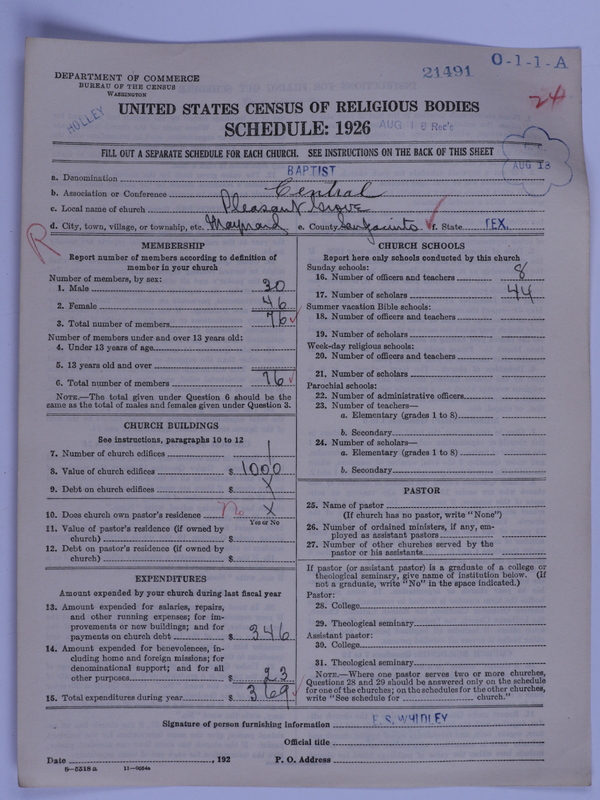 21491 O-1-1-A
DEPARTMENT OF COMMERCE
BUREAU OF THE CENSUS
WASHINGTON
HOLLEY
24
UNITED STATES CENSUS OF RELIGIOUS BODIES
SCHEDULE: 1926
AUG 18 Rec'd
FILL OUT A SEPARATE SCHEDULE FOR EACH CHURCH. SEE INSTRUCTIONS ON THE BACK OF THIS SHEET
AUG 13
a. Denomination BAPTIST
b. Association or Conference Central
c. Local name of church Pleasant Grove
d. City, town, village, or township, etc. Maynard e. County San Jacinto f. State TEX.
R
MEMBERSHIP
Report number of members according to definition of
member in your church
Number of members, by sex:
1. Male 30
2. Female 46
3. Total number of members 76
Number of members under and over 13 years old:
4. Under 13 years of age
5. 13 years old and over
6. Total number of members 76
NOTE.—The total given under Question 6 should be the
same as the total of males and females given under Question 3.
CHURCH BUILDINGS
See instructions, paragraphs 10 to 12
7. Number of church edifices 1
8. Value of church edifices $ 1000
9. Debt on church edifices $ X
10. Does church own pastor's residence no X
Yes or No
11. Value of pastor's residence (if owned by
church) $
12. Debt on pastor's residence (if owned by
church) $
EXPENDITURES
Amount expended by your church during last fiscal year
13. Amount expended for salaries, repairs,
and other running expenses; for im-
provements or new buildings; and for
payments on church debt $ 346
14. Amount expended for benevolences, in-
cluding home and foreign missions; for
denominational support; and for all
other purposes $ 23
15. Total expenditures during year $ 369
CHURCH SCHOOLS
Report here only schools conducted by this church
Sunday schools:
16. Number of officers and teachers 8
17. Number of scholars 44
Summer vacation Bible schools:
18. Number of officers and teachers
19. Number of scholars
Week-day religious schools:
20. Number of officers and teachers
21. Number of scholars
Parochial schools:
22. Number of administrative officers
23. Number of teachers—
a. Elementary (grades 1 to 8)
b. Secondary
24. Number of scholars—
a. Elementary (grades 1 to 8)
b. Secondary
PASTOR
25. Name of pastor
(If church has no pastor, write "None")
26. Number of ordained ministers, if any, em-
ployed as assistant pastors
27. Number of other churches served by the
pastor or his assistants
If pastor (or assistant pastor) is a graduate of a college or
theological seminary, give name of institution below. (If
not a graduate, write "No" in the space indicated.)
Pastor:
28. College
29. Theological seminary
Assistant pastor:
30. College
31. Theological seminary
NOTE.—Where one pastor serves two or more churches,
Questions 28 and 29 should be answered only on the schedule
for one of the churches; on the schedules for the other churches,
write "See schedule for church."
Signature of person furnishing information E. S. WHIDLEY
Official title
Date , 192 P. O. Address
8—5318 a 11—9054a